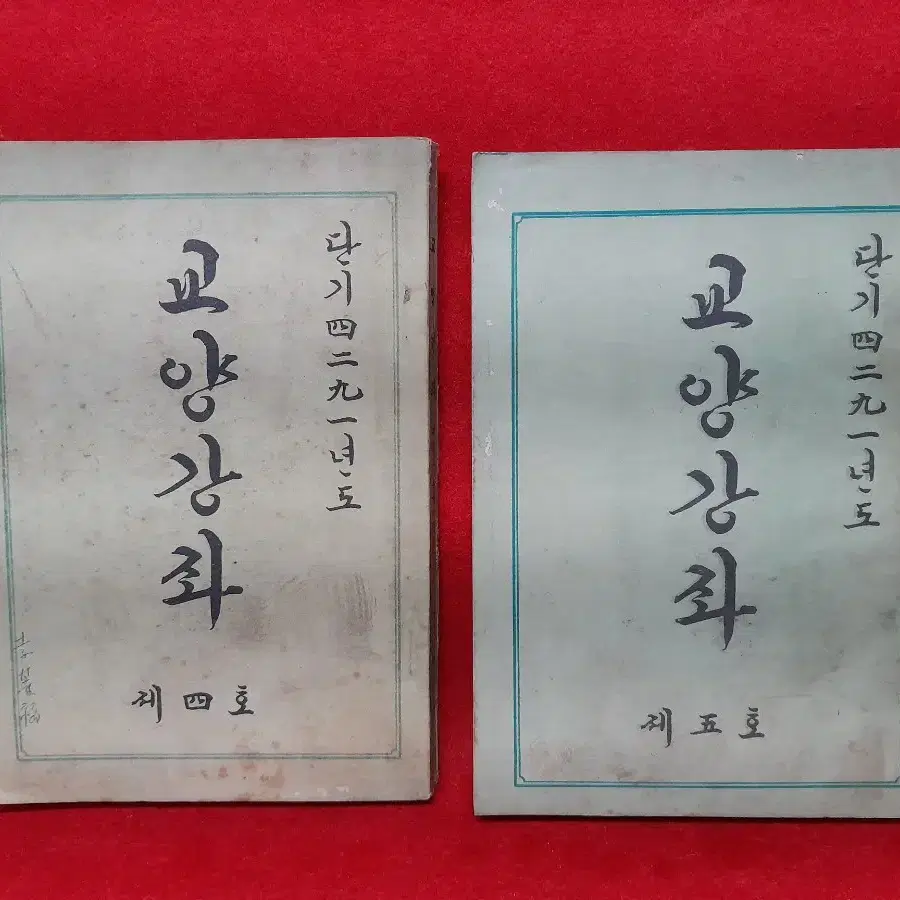 단기四二九一년도
교양강좌
제四호
단기四二九一년도
교양강좌
제五호